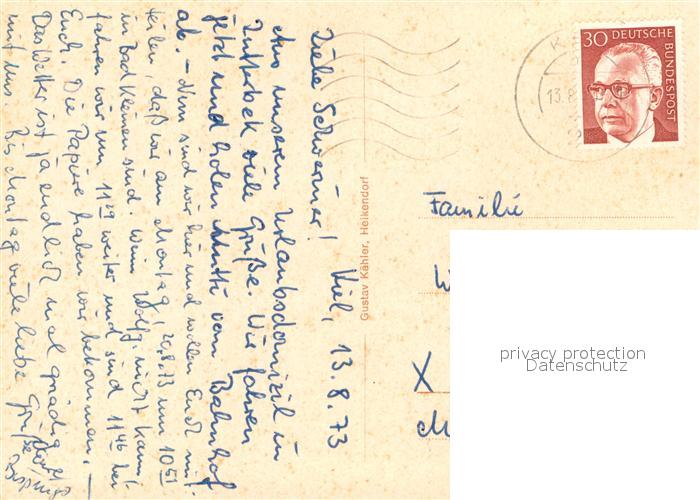 Kiel, 13.8.73
Liebe Schweriner!
Aus unserem Urlaubsdomizil in
viele Grüße. Wir fahren
jetzt und holen Mutti vom Bahnhof
ab. – Nun sind wir hier und wollen Euch mit-
teilen, daß wir am Montag, 20.8.73 um 10 51
in Bad Kleinen sind. Wenn Wolfg. nicht kann,
fahren wir um 11 29 weiter und sind 11 46 bei
Euch. Die Papiere haben wir bekommen. –
Das Wetter ist ja endlich mal gnädig
mit uns. Bis Montag viele liebe Grüße
Gustav Kähler, Heikendorf
30 DEUTSCHE
BUNDESPOST
13.8
Familie
W
X
privacy protection
Datenschutz